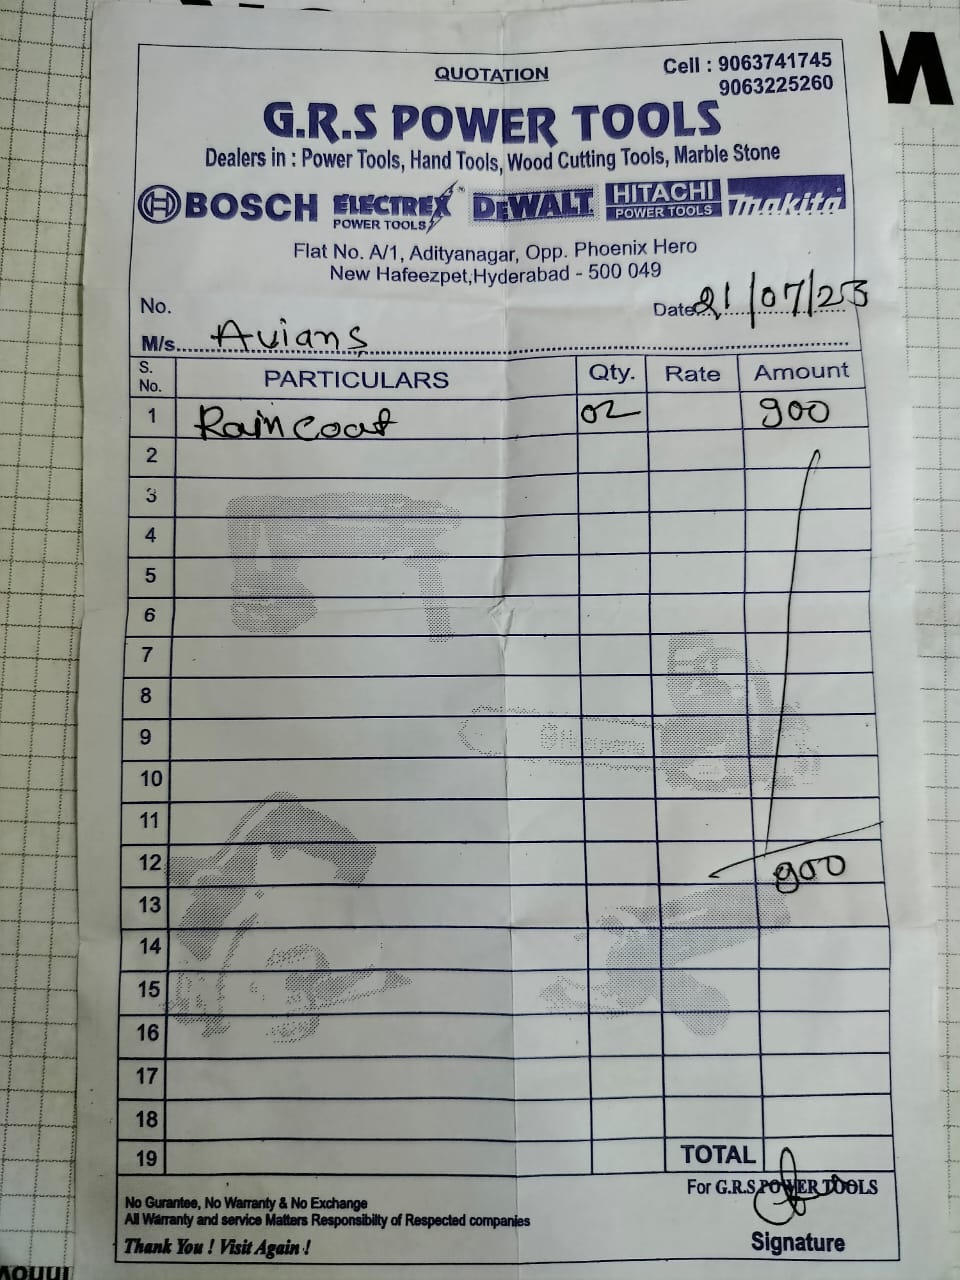 QUOTATION
Cell : 9063741745
9063225260
G.R.S POWER TOOLS
Dealers in : Power Tools, Hand Tools, Wood Cutting Tools, Marble Stone
BOSCH ELECTREX POWER TOOLS DEWALT HITACHI POWER TOOLS makita
Flat No. A/1, Adityanagar, Opp. Phoenix Hero
New Hafeezpet,Hyderabad - 500 049
No.
Date 21/07/23
M/s. Avians
S. No. PARTICULARS Qty. Rate Amount
1 Rain Coat 02 900
2
3
4
5
6
7
8
9
10
11
12 900
13
14
15
16
17
18
19 TOTAL
For G.R.S POWER TOOLS
No Gurantee, No Warranty & No Exchange
All Warranty and service Matters Responsibilty of Respected companies
Thank You ! Visit Again !
Signature